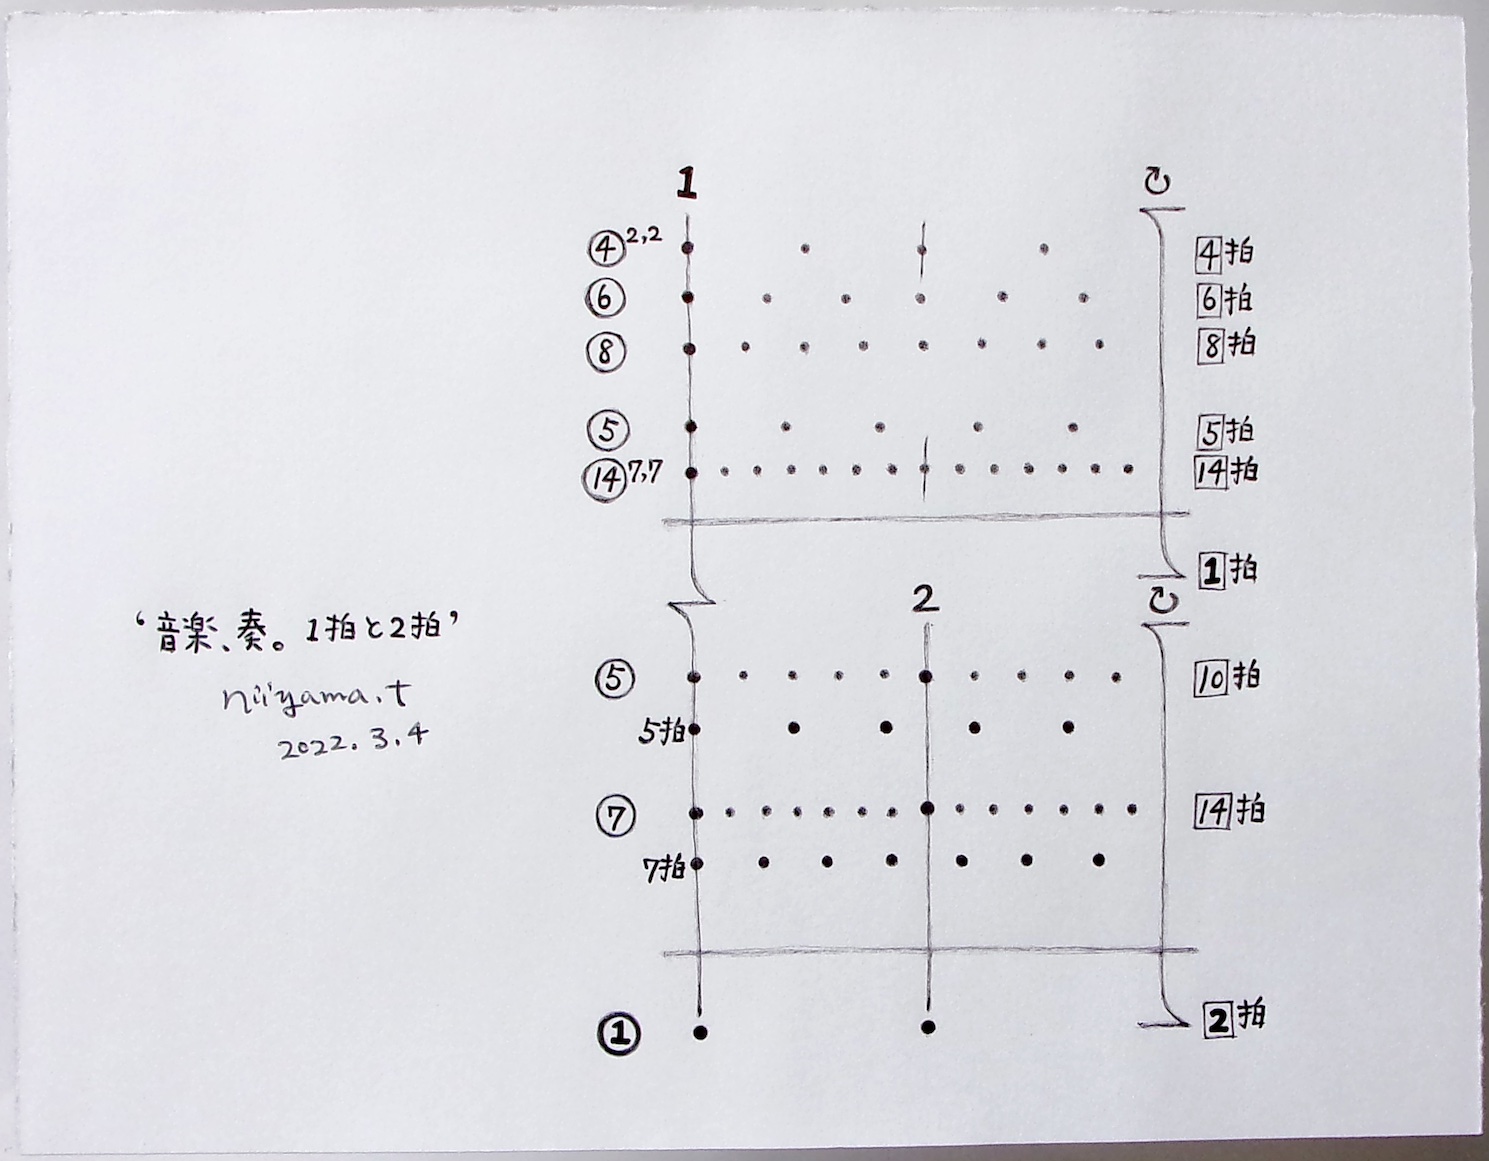 1 ↻
④2,2 4拍
⑥ 6拍
⑧ 8拍
⑤ 5拍
⑭7,7 14拍
1拍
2 ↻
'音楽、奏。1拍と2拍'
niiyama.t
2022.3.4
⑤ 10拍
5拍
⑦ 14拍
7拍
① 2拍